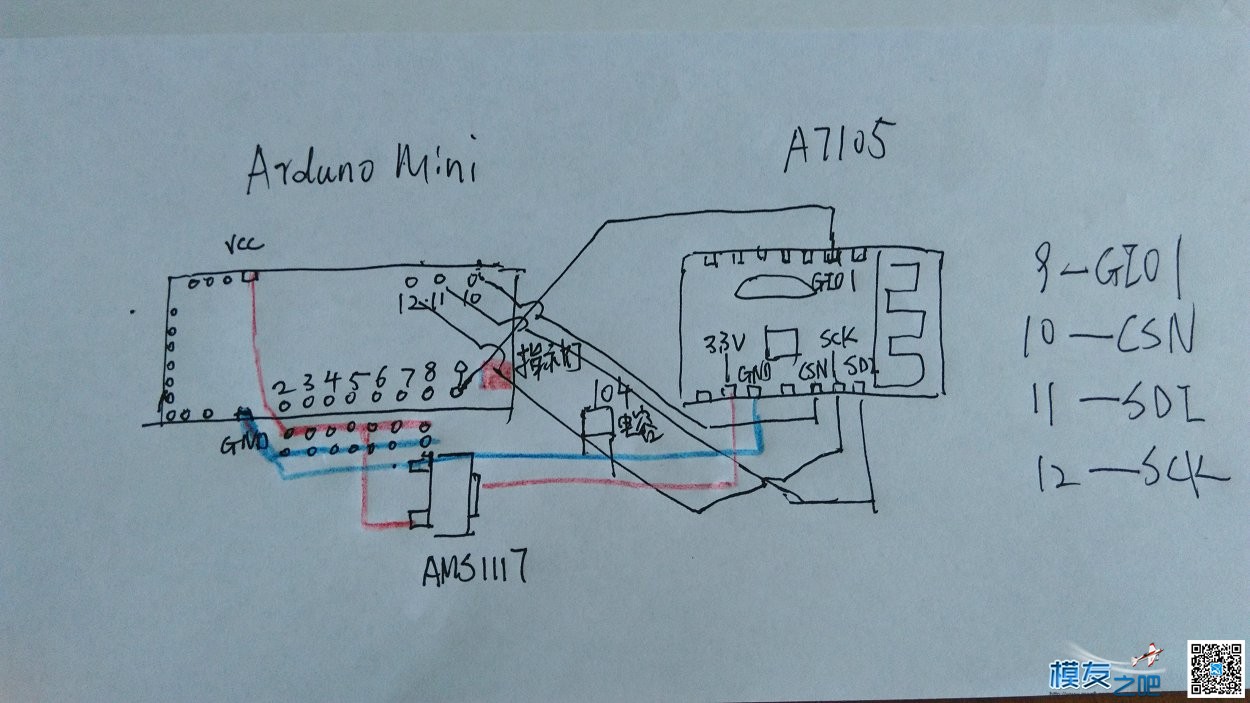 Arduno Mini
A7105
VCC
12 11 10
GIO1
9-GIO1
3.3V
SCK
10-CSN
指示灯
GND
CSN
SDI
2 3 4 5 6 7 8 9
104
电容
11-SDI
GND
12-SCK
AMS1117
模友之吧